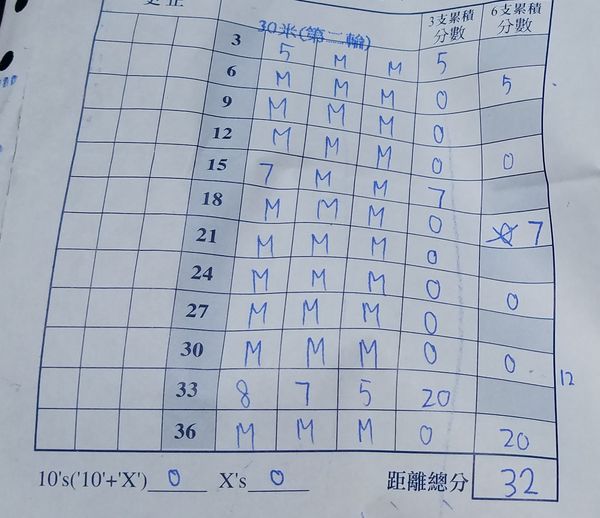 更正 30米(第二輪) 3支累積分數 6支累積分數
3 5 M M 5
6 M M M 0 5
9 M M M 0
12 M M M 0 0
15 7 M M 7
18 M M M 0 7
21 M M M 0
24 M M M 0 0
27 M M M 0
30 M M M 0 0
33 8 7 5 20 12
36 M M M 0 20
10's('10'+'X') 0 X's 0 距離總分 32